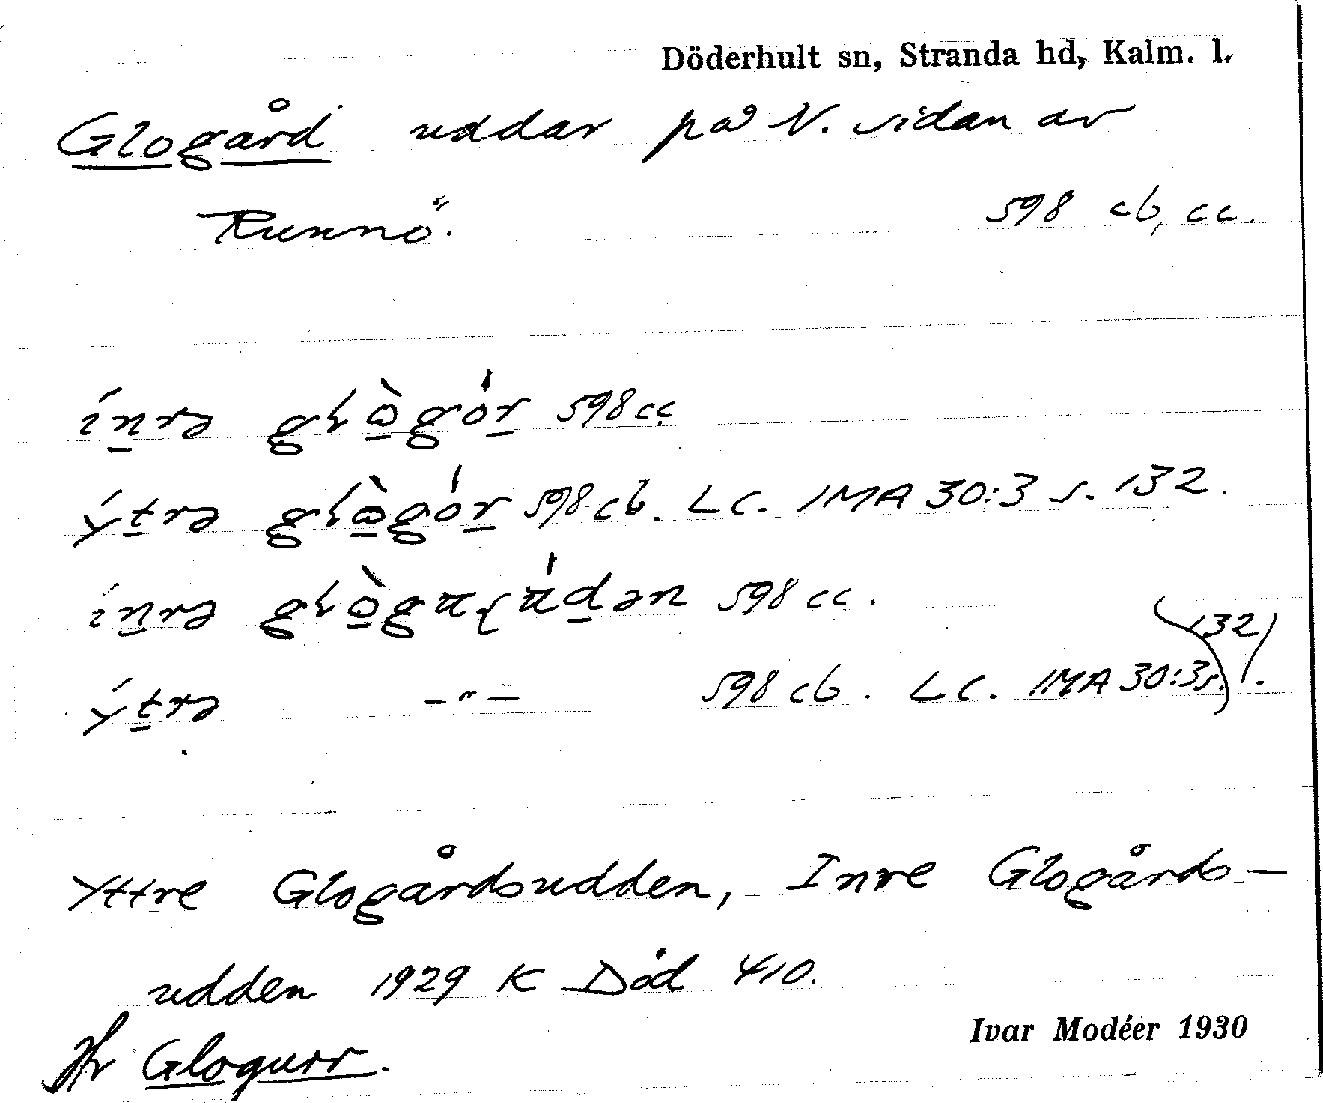 Döderhult sn, Stranda hd, Kalm. l.
Glogård uddar på N. sidan av
Runnö. 598 cb, cc.
ínrə 598 cc
ýtrə 598 cb. LC. IMA 30:3 s. 132.
ínrə 598 cc.
ýtrə —"— 598 cb. LC. IMA 30:3 s. 132.
Yttre Glogårdsudden, Inre Glogårds-
udden 1929 K Död 410.
Jfr Glogurr.
Ivar Modéer 1930